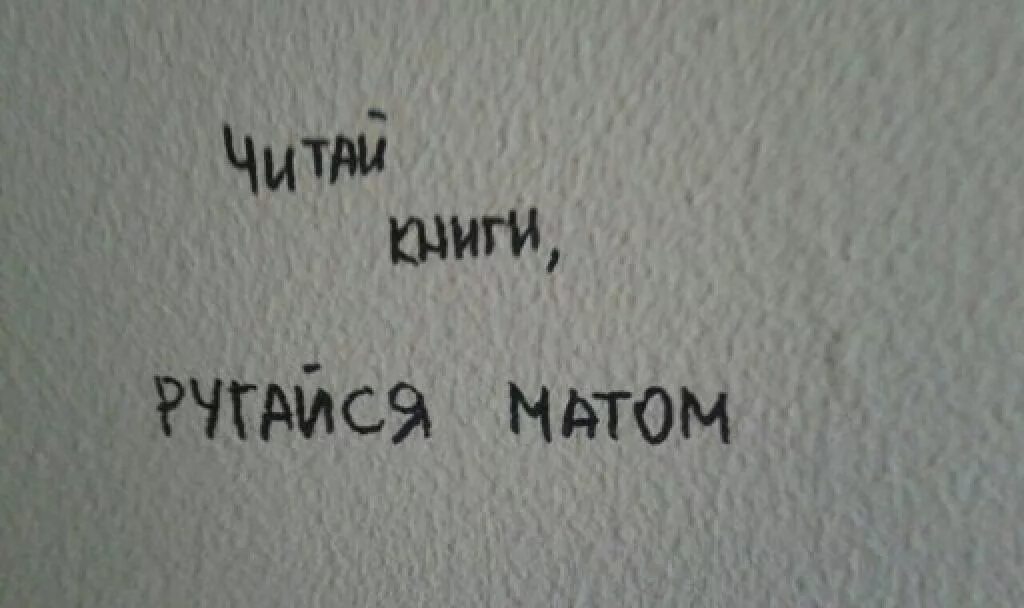 ЧИТАЙ
КНИГИ,
РУГАЙСЯ МАТОМ